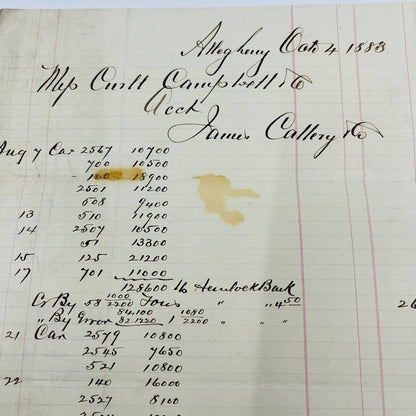 Allegheny Octr 4 1883
Mess Curll Campbell & Co
Acct
James Callery & Co
Aug 7 Car 2567 10700
700 10500
100 18900
2501 11200
608 9400
13 510 11900
14 2507 10500
51 13300
15 125 21200
17 701 11000
128600 lb Hemlock Bark
Cr By 58 1000/2200 Tons " " 4 50 26
" By Error 84.100 82.1220 1 1080/2200 " "
21 Car 2579 10800
2545 7650
521 10800
22 140 16000
2527 8100